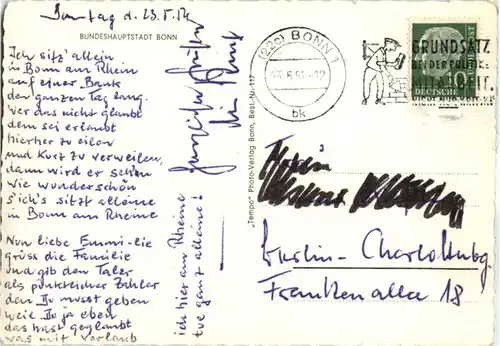 Sonntag d. 23.5.54
BUNDESHAUPTSTADT BONN
Ich sitz' allein
in Bonn am Rhein
auf einer Bank
den ganzen Tag lang.
Wer das nicht glaubt
dem sei erlaubt
hierher zu eilen
und kurz zu verweilen,
dann wird er sehen
wie wunderschön
sich's sitzt alleine
in Bonn am Rheine
Nun liebe Emmi-lie
grüss die Familie
und gib den Taler
als pünktlicher Zahler
den Du musst geben
weil Du ja eben
das hast geglaubt
was mit Verlaub
ich hier am Rheine
tue ganz alleine!
Herzliche Grüße
"Tempo" Photo-Verlag Bonn, Best.-Nr. 117
(22c) BONN 1
bk
GRUNDSATZ
BEI DER POLITIK:
QUALITÄT
10
DEUTSCHE
Berlin-Charlottenbg.
Frankenallee 18